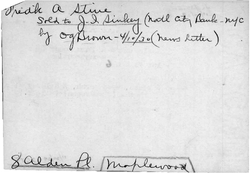 Fredk A Stine
Sold to J.I. Simkey (Natl City Bank - NYC
by OG Drown - 4/10/30 (News Letter)
8 Alden Pl. Maplewood